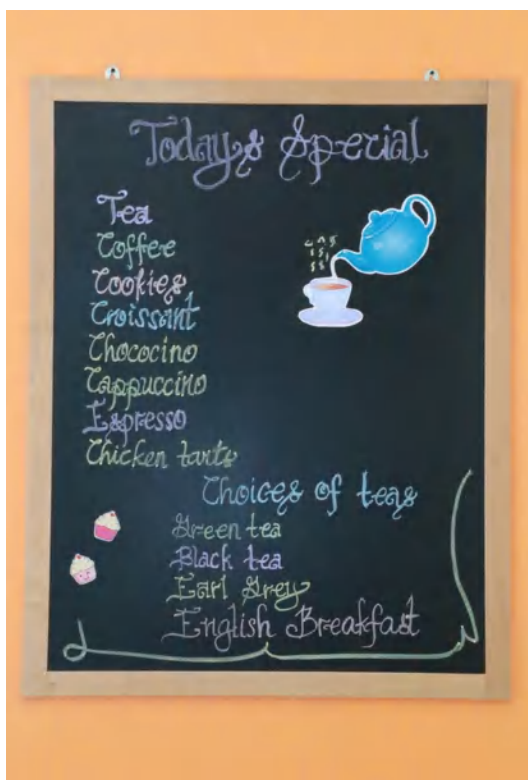 Todays Special
Tea
Coffee
Cookies
Croissant
Chococino
Cappuccino
Espresso
Chicken tarts
Choices of teas
Green tea
Black tea
Earl Grey
English Breakfast